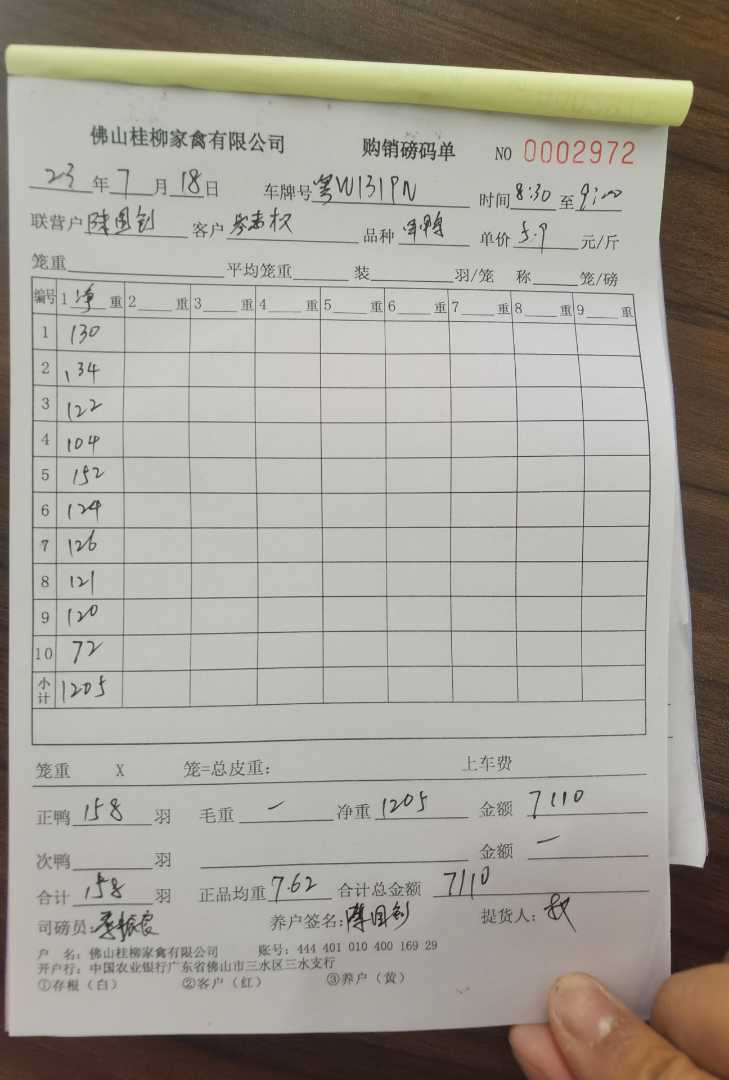 佛山桂柳家禽有限公司 购销磅码单 NO 0002972
23年7月18日 车牌号粤W131PN 时间8:30至9:00
联营户陆国钊 客户 品种 单价5.9元/斤
笼重 平均笼重 装 羽/笼 称 笼/磅
编号 1净重 2 重 3 重 4 重 5 重 6 重 7 重 8 重 9 重
1 130
2 134
3 122
4 104
5 152
6 124
7 126
8 121
9 120
10 72
小计 1205
笼重 X 笼=总皮重: 上车费
正鸭158羽 毛重 一 净重1205 金额7110
次鸭 羽 金额 一
合计158羽 正品均重7.62 合计总金额7110
司磅员: 养户签名:陆国钊 提货人:权
户 名: 佛山桂柳家禽有限公司 账号: 444 401 010 400 169 29
开户行: 中国农业银行广东省佛山市三水区三水支行
①存根(白) ②客户(红) ③养户(黄)